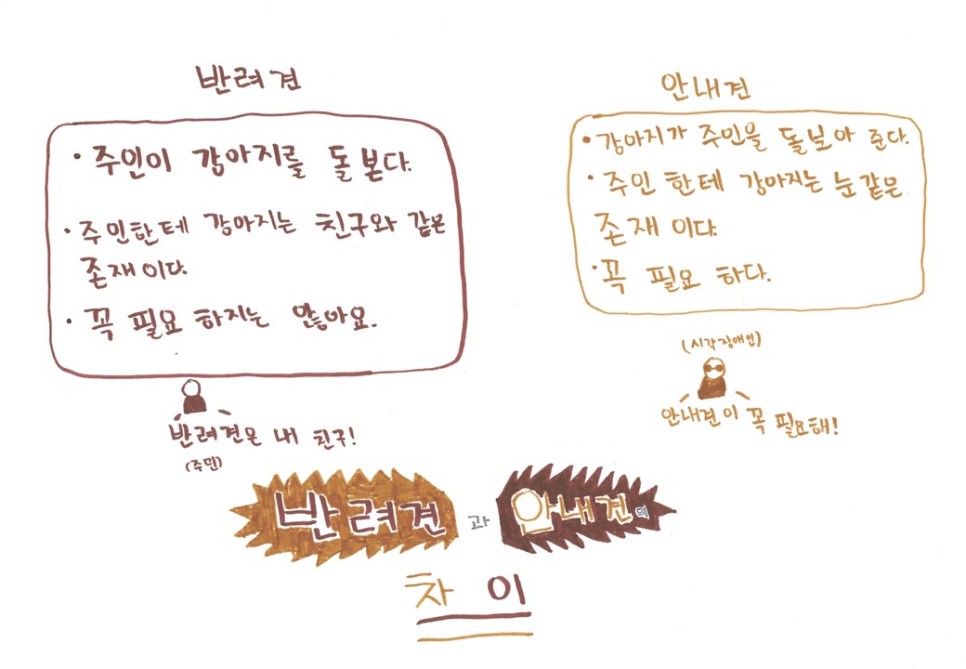 반려견
• 주인이 강아지를 돌본다.
• 주인한테 강아지는 친구와 같은
존재이다.
• 꼭 필요 하지는 않아요.
반려견은 내 친구!
(주인)
안내견
• 강아지가 주인을 돌보아 준다.
• 주인 한테 강아지는 눈같은
존재 이다.
• 꼭 필요 하다.
(시각장애인)
안내견이 꼭 필요해!
반려견과 안내견의
차이